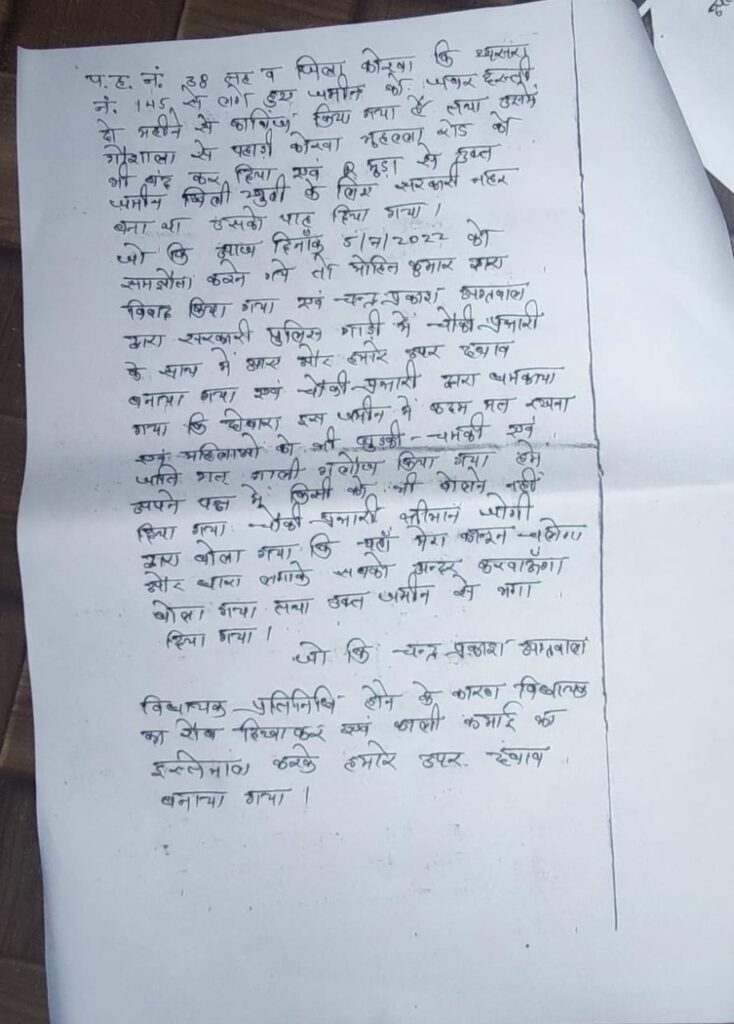 प.ह. नं. 38 तह व जिला कोरबा कि खसरा
नं. 145, से लगे हुए जमीन को जबर दस्ती
दो महीने से काबिज किया गया है तथा उसमें
गौशाला से पहाड़ी कोरवा मुहल्ला रोड को
भी बंद कर दिया एवं मुड़ा से उक्त
जमीन खेती के लिए सरकारी नहर
बना था उसको पाट दिया गया।
जो कि आज दिनाँक 5/7/2022 को
समझौता करने गये तो मोहित कुमार द्वारा
विवाद किया गया एवं चन्द्र प्रकाश अग्रवाल
द्वारा सरकारी पुलिस गाड़ी में चौकी प्रभारी
के साथ में आए और हमारे उपर दबाव
बनाया गया एवं चौकी प्रभारी द्वारा धमकाया
गया कि दोबारा इस जमीन में कदम मत रखना
एवं महिलाओं को भी धुड़की-चमकी एवं
जाति गत गाली गलौज किया गया हमे
अपने पक्ष में किसी को भी बोलने नहीं
दिया गया चौकी प्रभारी श्रीमान जोगी
द्वारा बोला गया कि यहाँ मेरा कानून चलेगा
और धारा लगाके सबको अन्दर करवाऊँगा
बोला गया तथा उक्त जमीन से भगा
दिया गया।
जो कि चन्द्र प्रकाश अग्रवाल
विधायक प्रतिनिधि होने के कारण विधायक
का रौब दिखाकर एवं काली कमाई का
इस्तेमाल करके हमारे उपर दबाव
बनाया गया।